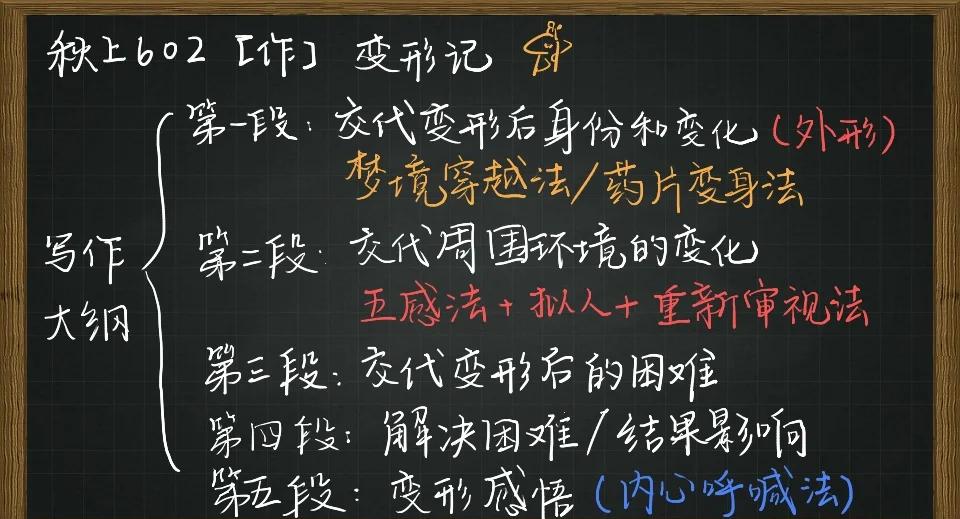 秋上602【作】 变形记
第一段：交代变形后身份和变化（外形）
梦境穿越法/药片变身法
写作
大纲
第二段：交代周围环境的变化
五感法+拟人+重新审视法
第三段：交代变形后的困难
第四段：解决困难/结果影响
第五段：变形感悟（内心呼喊法）